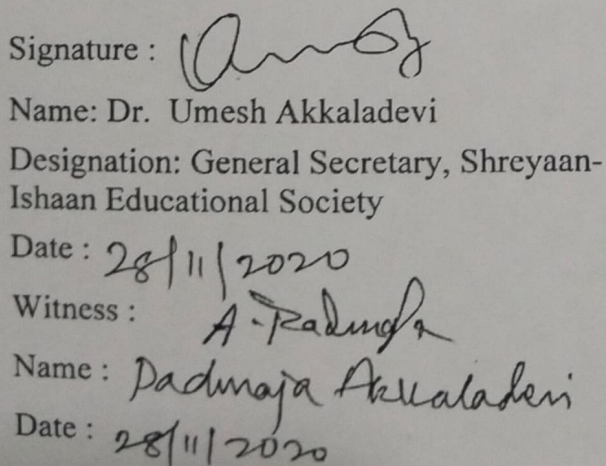 Signature :
Name: Dr. Umesh Akkaladevi
Designation: General Secretary, Shreyaan-
Ishaan Educational Society
Date : 28/11/2020
Witness : A. Padmaja
Name : Padmaja Akkaladevi
Date : 28/11/2020